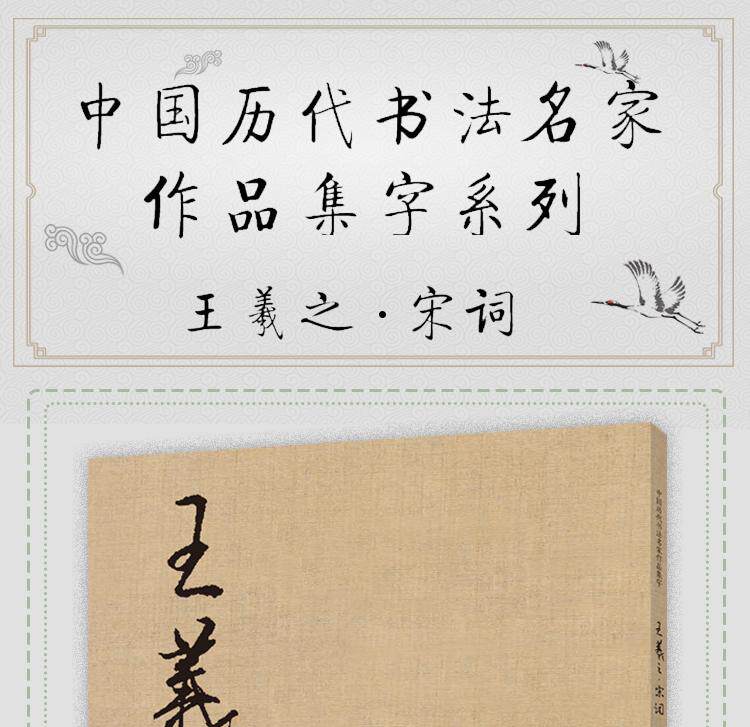 中国历代书法名家
作品集字系列
王羲之·宋词
王羲
中国历代书法名家作品集字
王羲之·宋词